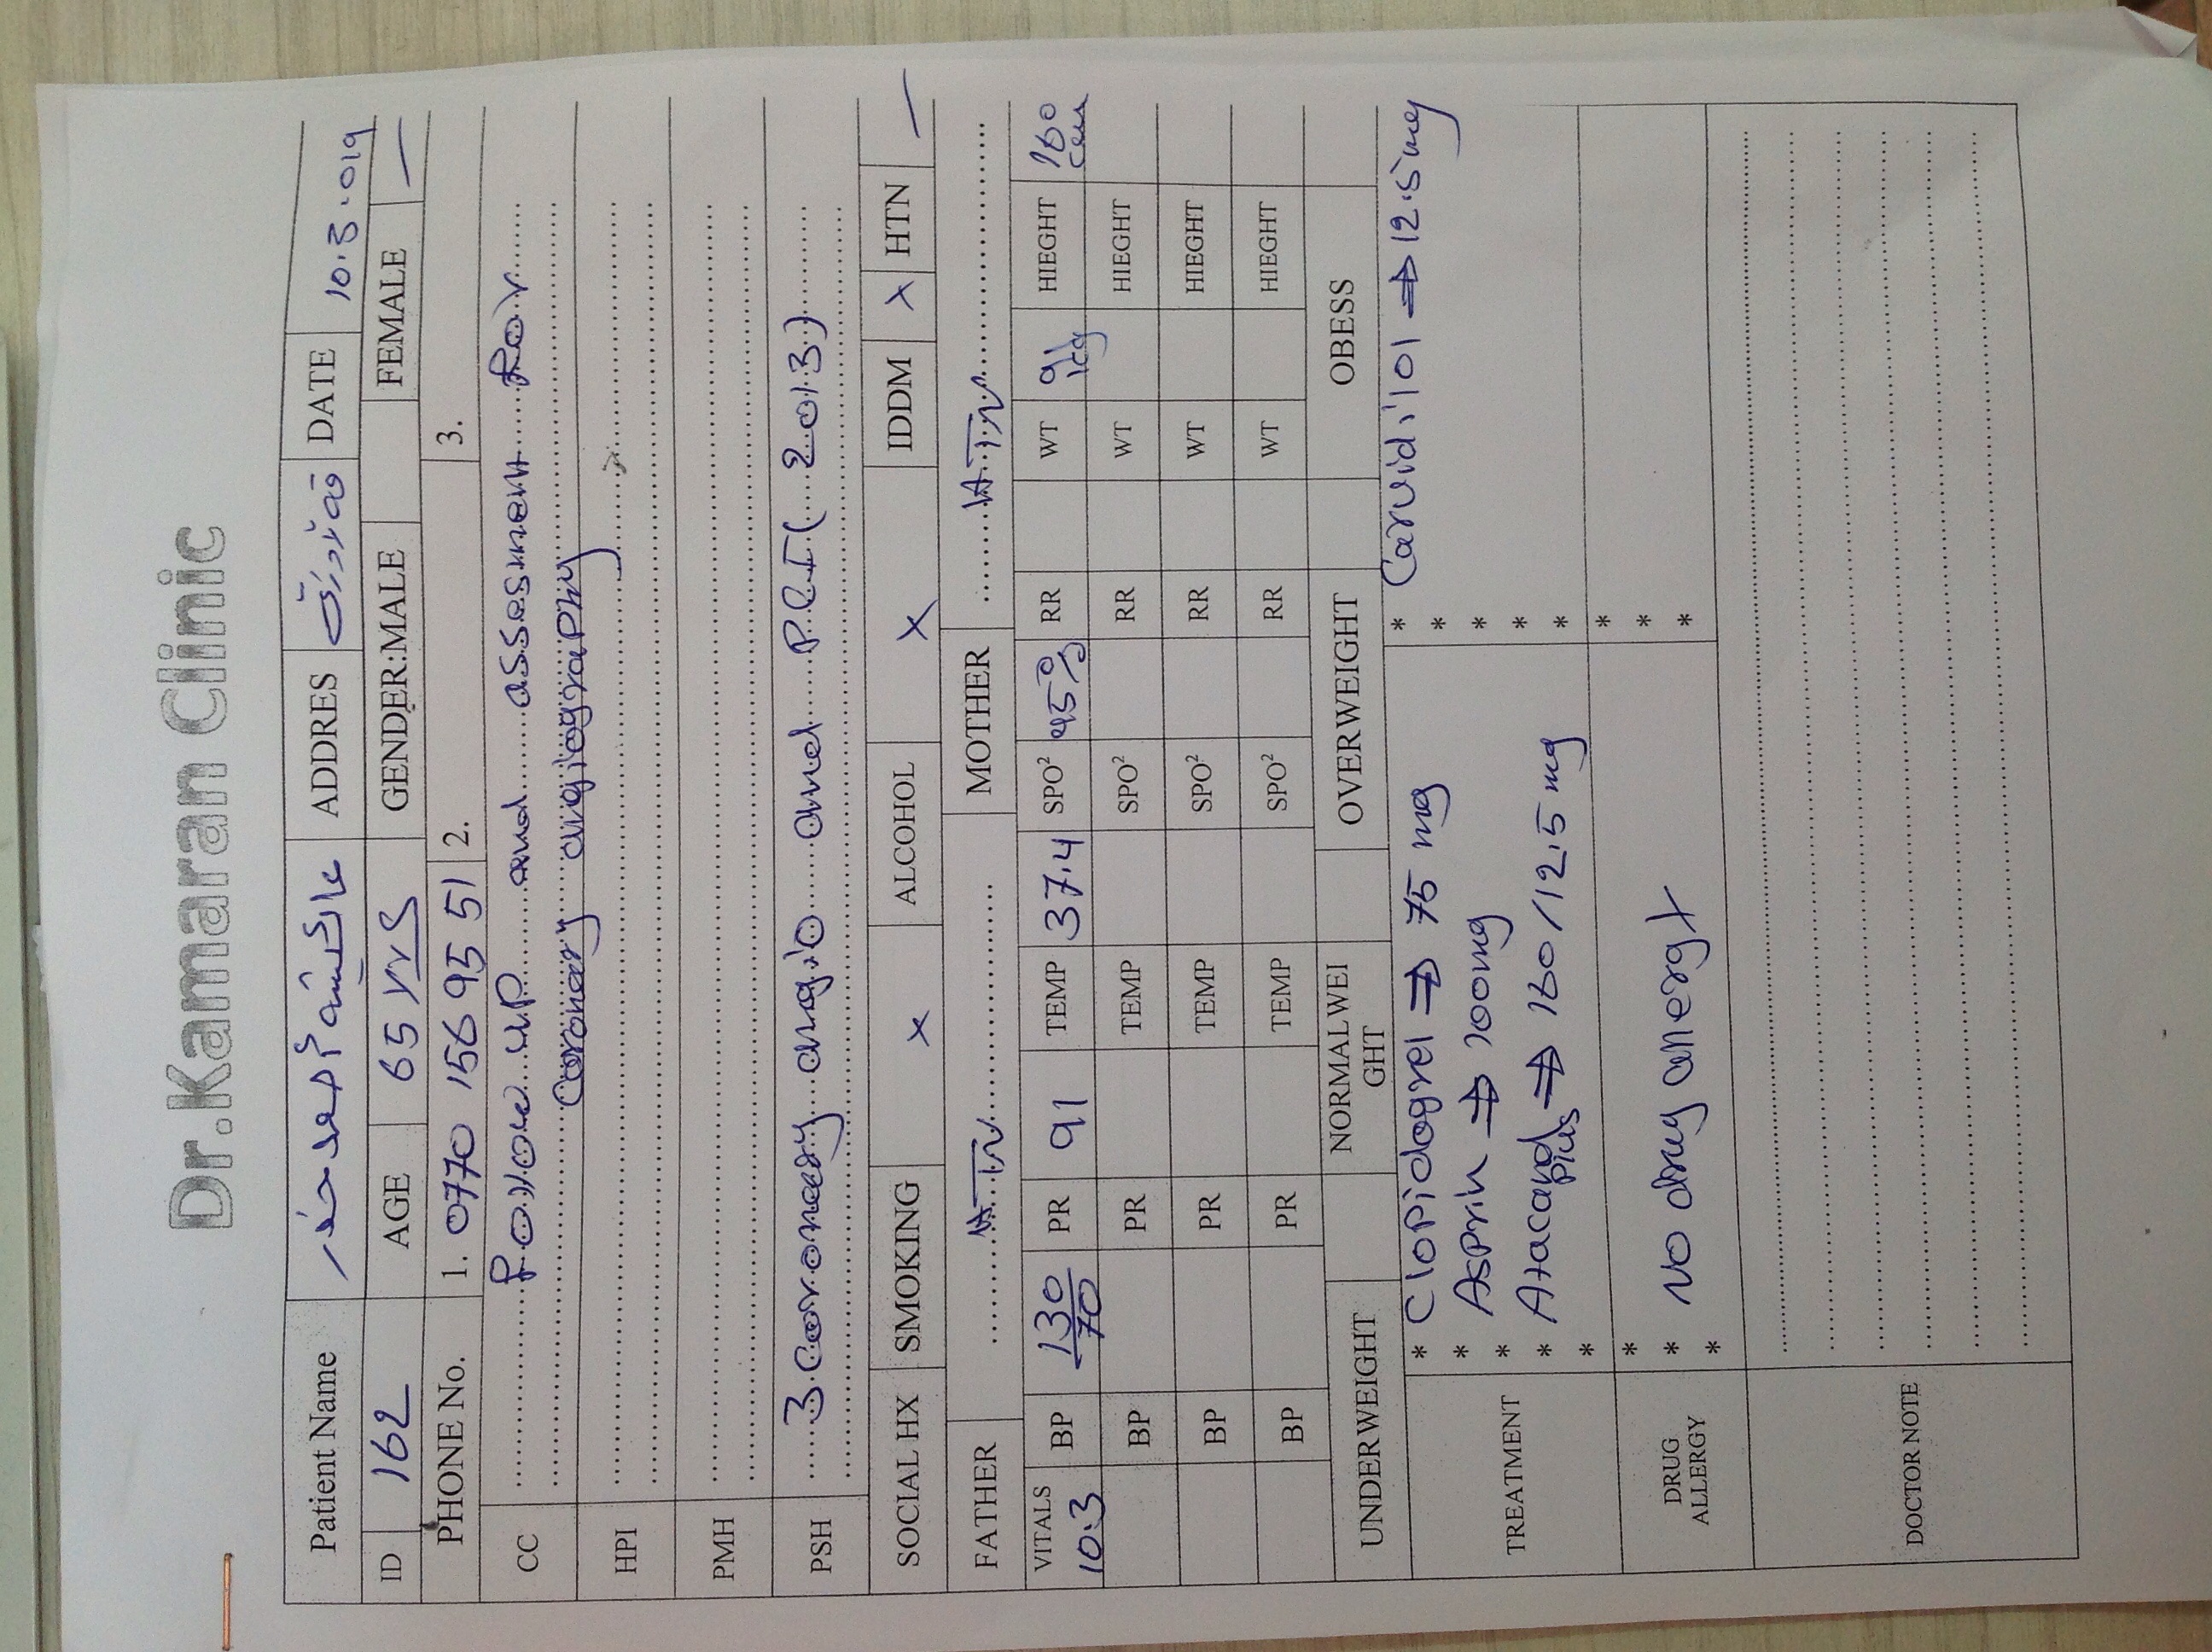 Dr.Kamaran Clinic
Patient Name ADDRES DATE 10.3.019
ID 162 AGE 65 yrs GENDER:MALE FEMALE —
PHONE No. 1. 0770 156 95 51 2. 3.
CC Follow up and assesment for
coronary angiography
HPI
PMH
PSH 3 coronery angio and PCI ( 2013)
SOCIAL HX SMOKING x ALCOHOL x IDDM x HTN —
FATHER HTN MOTHER HTN
VITALS BP 130/70 PR 91 TEMP 37.4 SPO² 95% RR WT 91 HIEGHT 160
10.3 kg cm
BP PR TEMP SPO² RR WT HIEGHT
BP PR TEMP SPO² RR WT HIEGHT
BP PR TEMP SPO² RR WT HIEGHT
UNDERWEIGHT NORMALWEI OVERWEIGHT OBESS
GHT
TREATMENT * Clopidogrel ⇒ 75 mg * Carvidilol ⇒ 12.5mg
* Asprin ⇒ 100mg *
* Atacand ⇒ 160/12.5 mg *
plus
* *
* *
DRUG * *
ALLERGY * No drug allergy *
* *
DOCTOR NOTE